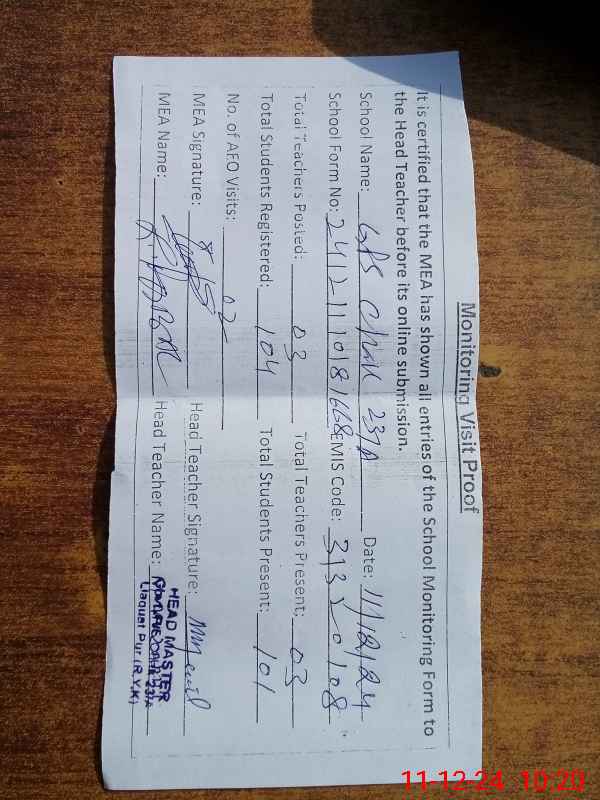 Monitoring Visit Proof
It is certified that the MEA has shown all entries of the School Monitoring Form to
the Head Teacher before its online submission.
School Name: GPS Chak 237A Date: 11/12/24
School Form No: EMIS Code: 31320108
Total Teachers Posted: 03 Total Teachers Present: 03
Total Students Registered: 104 Total Students Present: 101
No. of AEO Visits: 02
MEA Signature: Head Teacher Signature:
MEA Name: Head Teacher Name:
HEAD MASTER
237A
Liaquat Pur (R.Y.K)
11-12-24 10:20